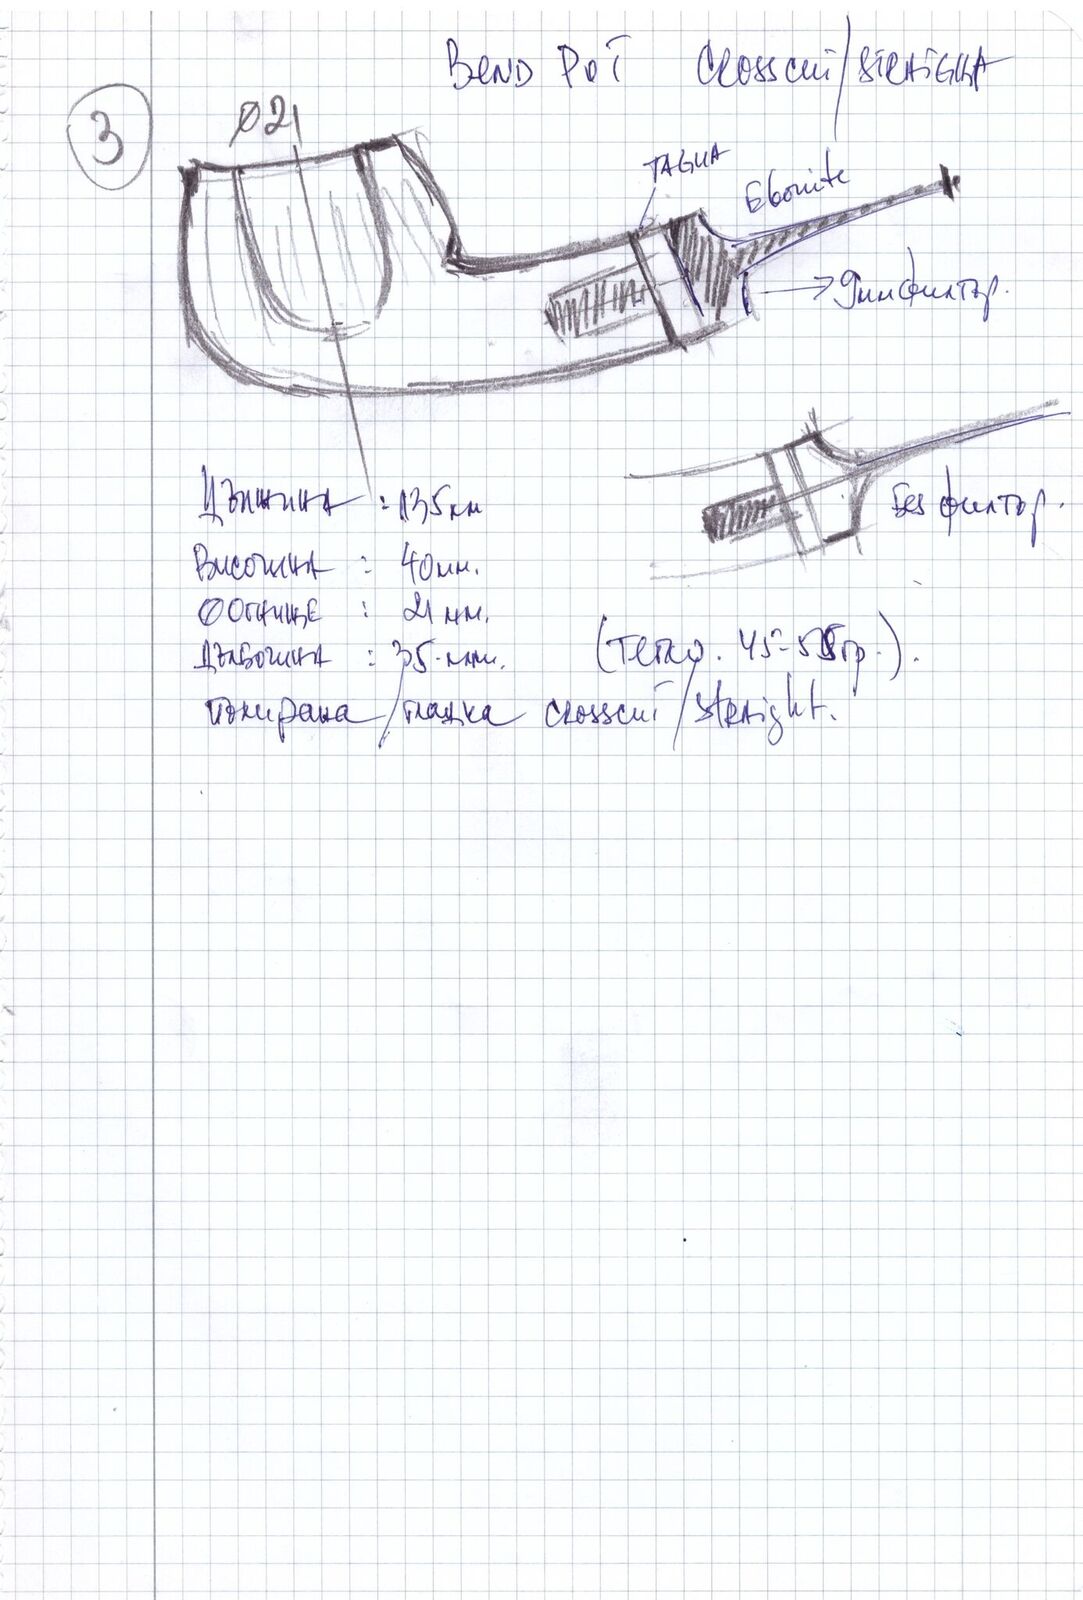 BEND POT CROSSCUT/STRAIGHT
3
Ø21
TAGUA
Ebonite
9мм филтър.
Без филтър.
Дължина : 135мм
Височина : 40мм.
Ø Огнище : 21мм.
Дълбочина : 35.мм.
(тегло. 45-55гр.).
полирана/гладка crosscut/straight.